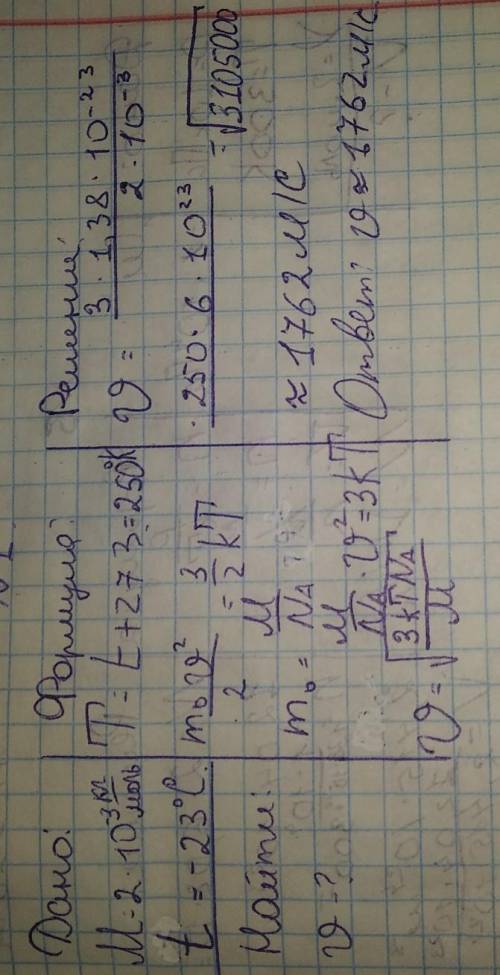 Дано:
M = 2 · 10⁻³ кг/моль
t = -23°C
Найти:
υ - ?
Формула:
T = t + 273 = 250°К
m₀υ²/2 = 3/2 kT
m₀ = M/Nₐ
M/Nₐ · υ² = 3kT
υ = √(3kTNₐ/M)
Решение:
υ = 3 · 1,38 · 10⁻²³ / 2 · 10⁻³
· 250 · 6 · 10²³ = √3105000
≈ 1762 м/с
Ответ: υ ≈ 1762 м/с